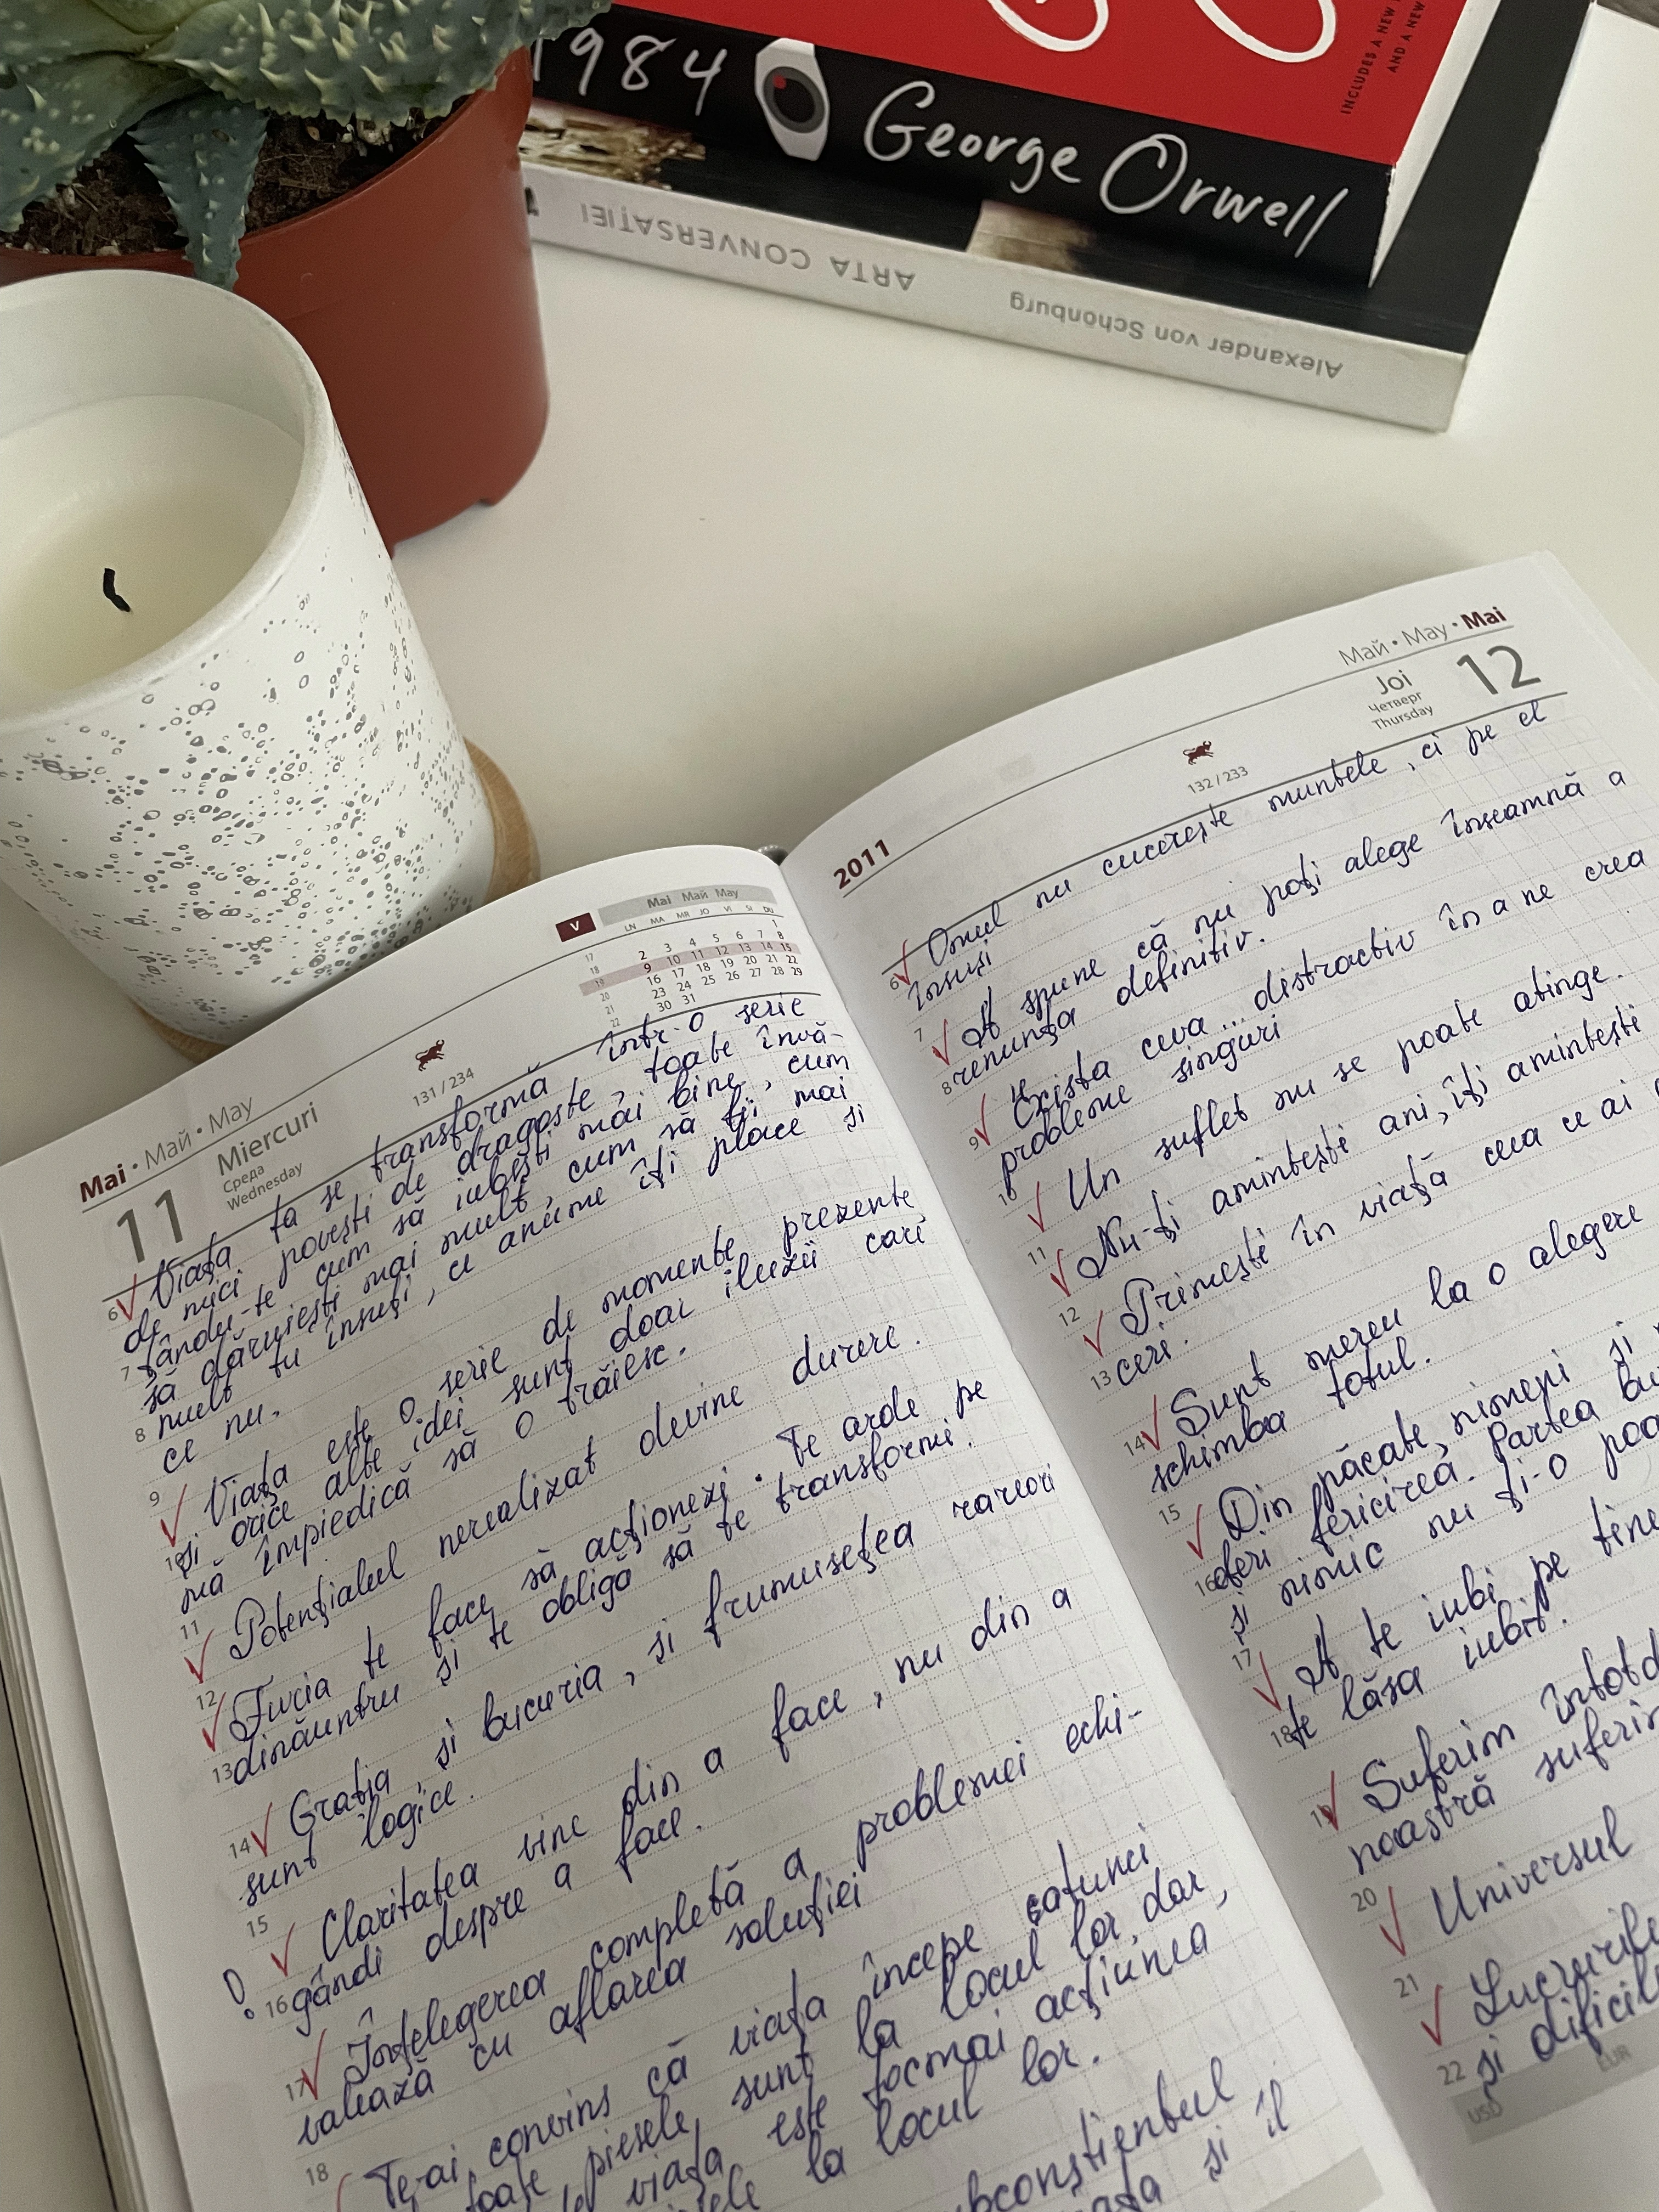 1984 George Orwell
INCLUDES A NEW
AND A NEW
ARTA CONVERSAȚIEI
Alexander von Schonburg
Mai • Май • May
11
Miercuri
Среда
Wednesday
131 / 234
V
Mai Май May
LN MA MR JO VI SI DU
1
17 2 3 4 5 6 7 8
18 9 10 11 12 13 14 15
19 16 17 18 19 20 21 22
20 23 24 25 26 27 28 29
21 30 31
22
Viața ta se transformă într-o serie
6 de mici povești de dragoste, toate învă-
țându-te cum să iubești mai bine, cum
7 să dăruiești mai mult, cum să fii mai
mult tu însuți, ce anume îți place și
8 ce nu.
9 Viața este o serie de momente prezente
și orice alte idei sunt doar iluzii cari
10 mă împiedică să o trăiesc.
11 Potențialul nerealizat devine durere.
12 Furia te face să acționezi. Te arde pe
13 dinăuntru și te obligă să te transformi.
14 Grația, și bucuria, și frumusețea rareori
sunt logice.
15 Claritatea vine din a face, nu din a
16 gândi despre a face.
17 Înțelegerea completă a problemei echi-
valează cu aflarea soluției
18 Te-ai convins că viața începe atunci
toate piesele sunt la locul lor, dar,
viața este tocmai acțiunea
la locul lor.
și îl
2011
132 / 233
Май • May • Mai
Joi
Четверг
Thursday
12
6 Omul nu cucerește muntele, ci pe el
însuși
7 A spune că nu poți alege înseamnă a
8 renunța definitiv.
9 Exista ceva... distractiv în a ne crea
probleme singuri
10 Un suflet nu se poate atinge.
11 Nu-ți amintești ani, îți amintești
12 Primești în viață ceea ce ai
13 ceri.
14 Sunt mereu la o alegere
schimba totul.
15 Din păcate, nimeni și
16 oferi fericirea. Partea
și nimic nu ți-o
17 A te iubi pe tine
18 te lăsa iubit.
19 Suferim
noastră
20 Universul
21 Lucrurile
22 și
USD EUR